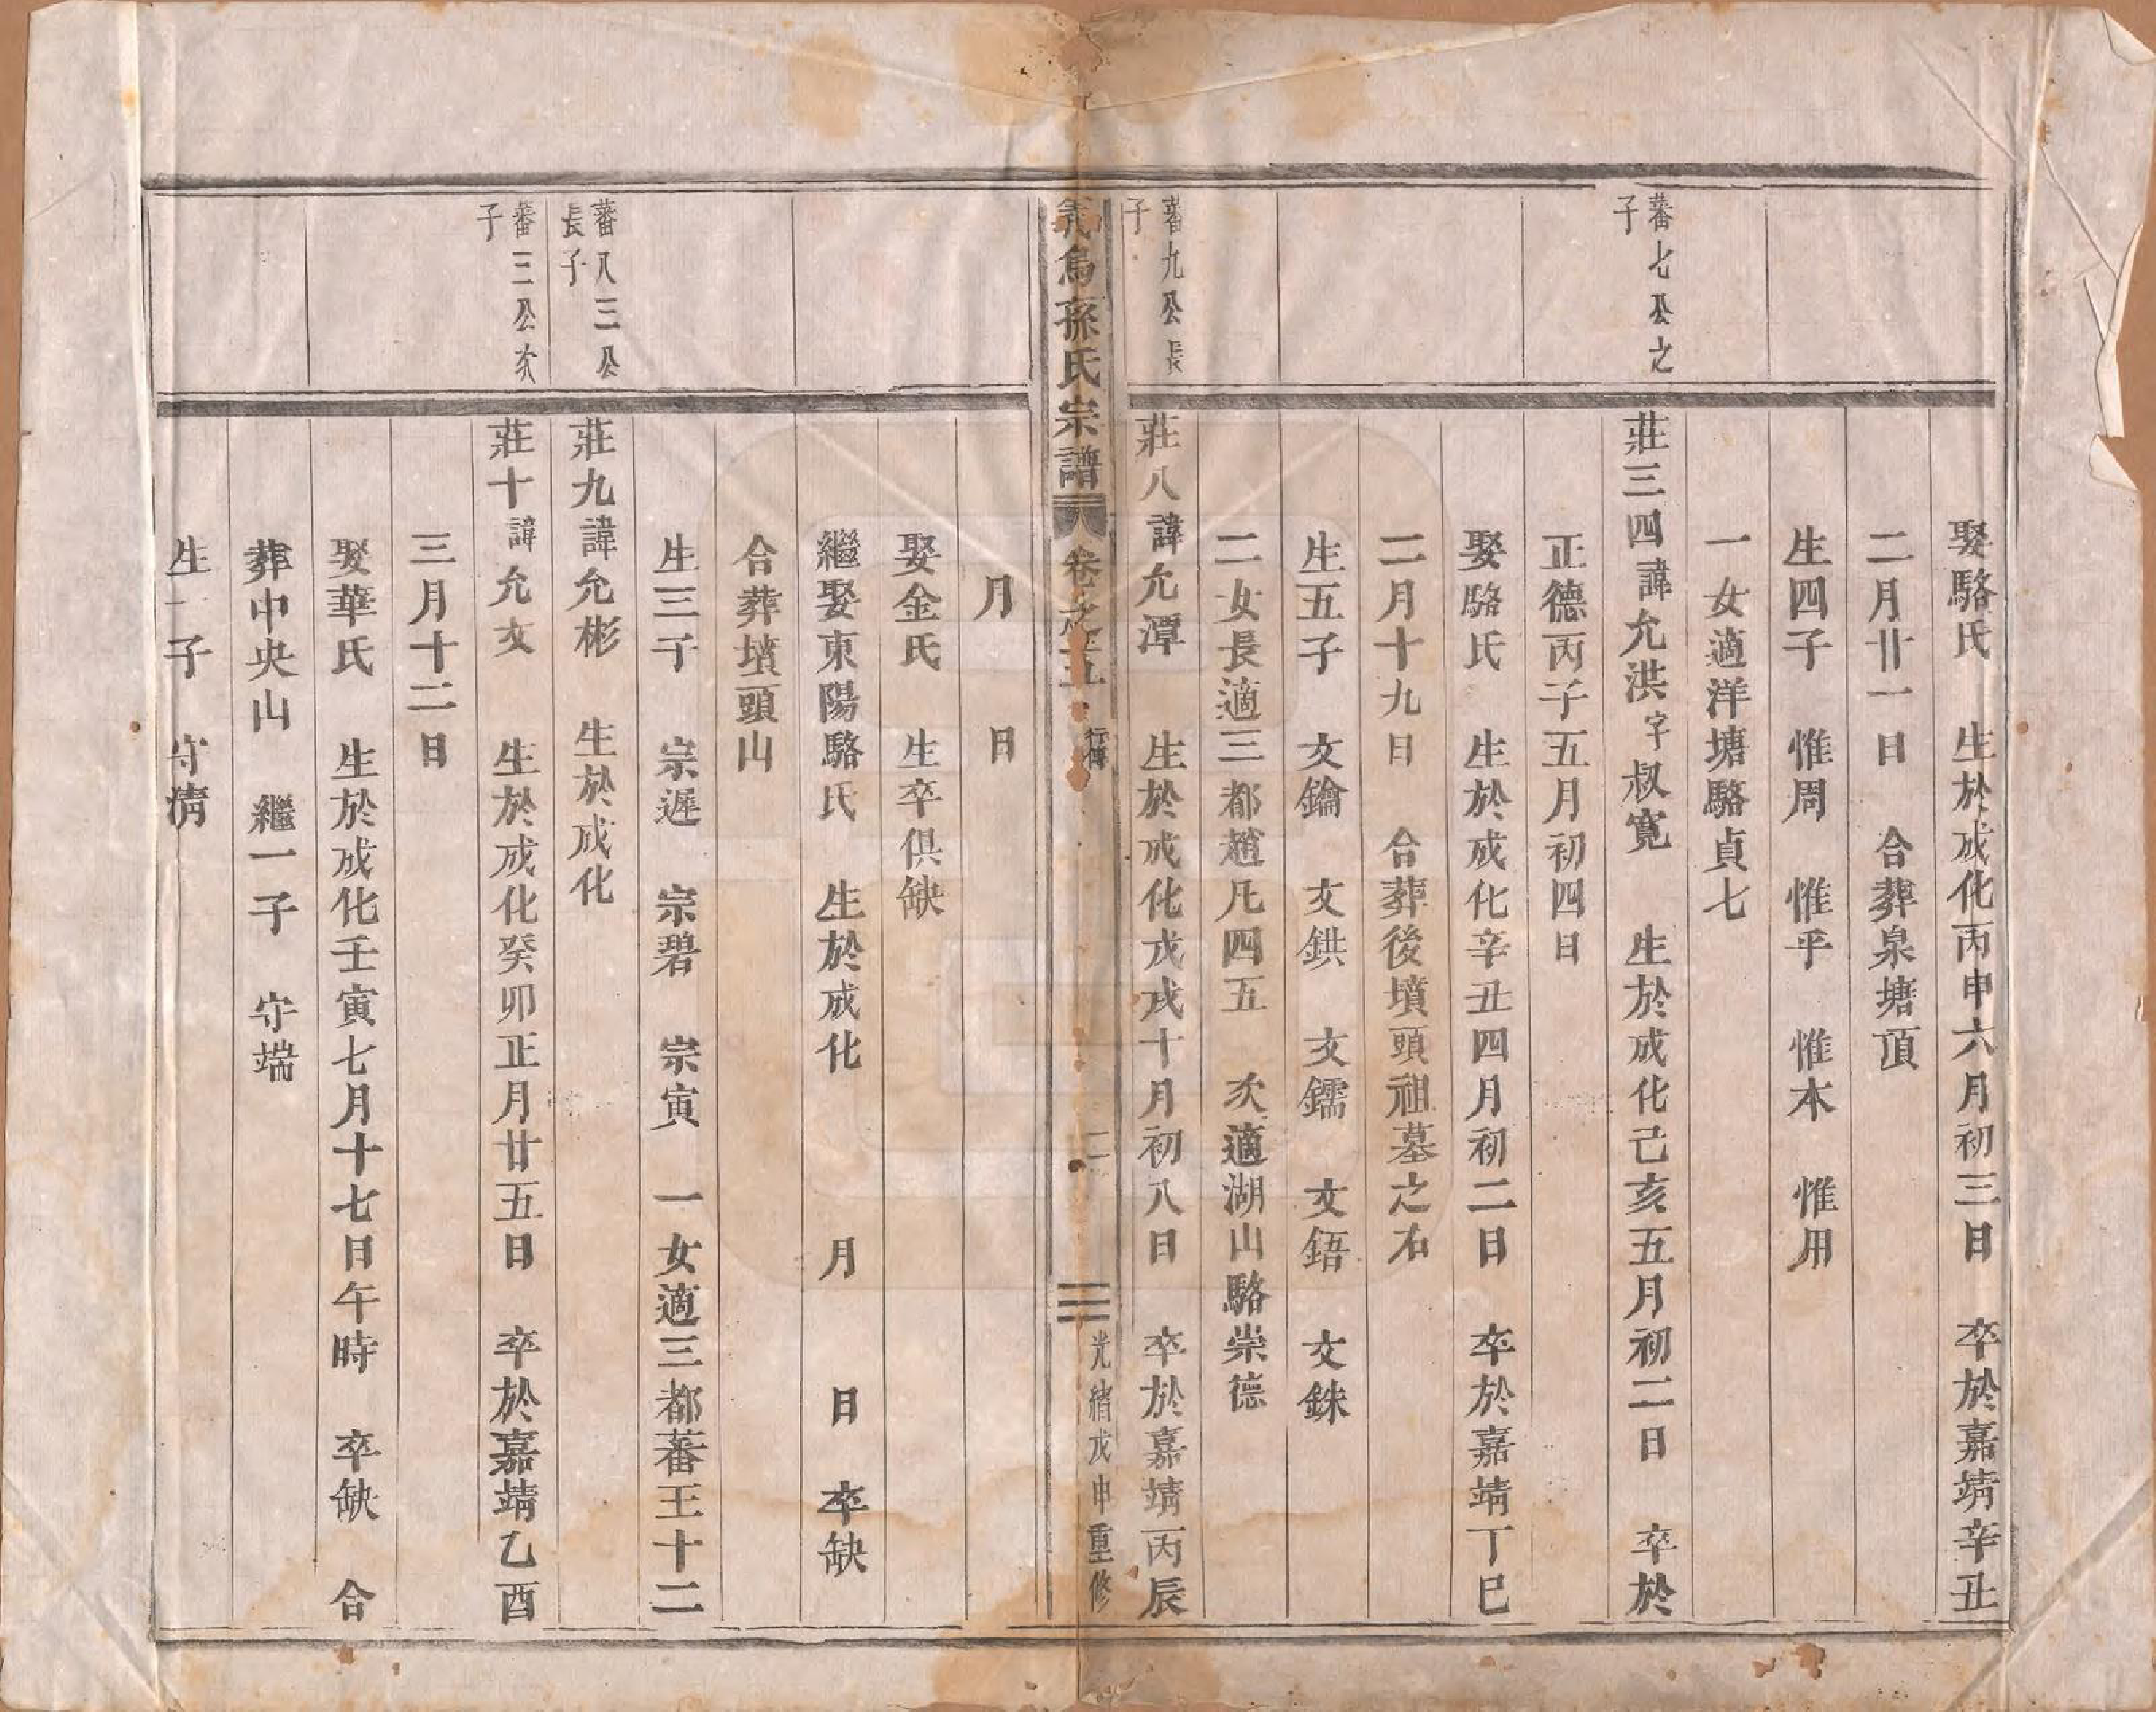 娶駱氏 生於成化丙申六月初三日 卒於嘉靖辛丑
二月廿一日 合葬泉塘頂
生四子 惟周 惟乎 惟本 惟用
一女適洋塘駱貞七
蕃七公之子
莊三四諱允洪字叔寬 生於成化己亥五月初二日 卒於
正德丙子五月初四日
娶駱氏 生於成化辛丑四月初二日 卒於嘉靖丁巳
二月十九日 合葬後墳頭祖墓之右
生五子 文鑰 文鉷 文鑐 文鋙 文銖
二女長適三都趙凡四五 次適湖山駱崇德
蕃九公長子
莊八諱允潭 生於成化戊戌十月初八日 卒於嘉靖丙辰
義烏孫氏宗譜 卷之五 行傳 二 光緒戊申重修
月 日
娶金氏 生卒俱缺
繼娶東陽駱氏 生於成化 月 日 卒缺
合葬墳頭山
生三子 宗遲 宗碧 宗寅 一女適三都蕃王十二
蕃八三公長子
莊九諱允彬 生於成化
蕃三公次子
莊十諱允文 生於成化癸卯正月廿五日 卒於嘉靖乙酉
三月十二日
娶華氏 生於成化壬寅七月十七日午時 卒缺 合
葬中央山 繼一子 守端
生一子 守清